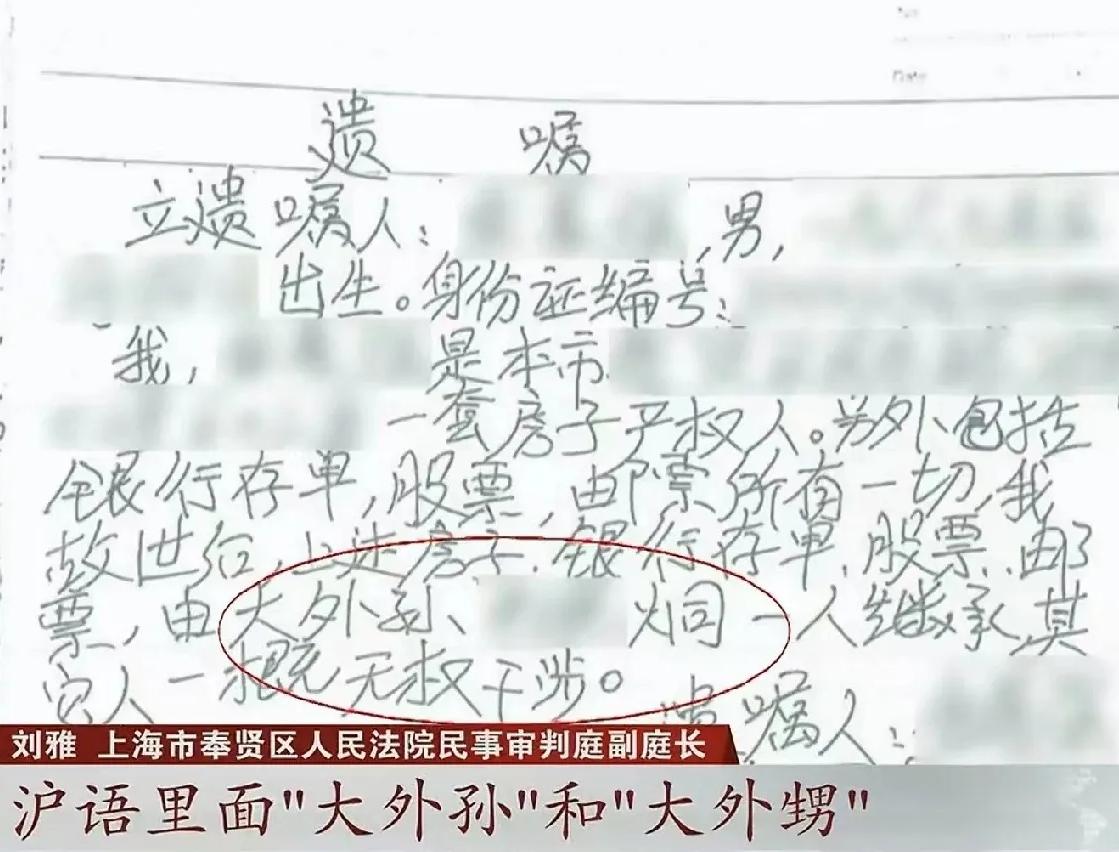 遗 嘱
立遗嘱人: ,男,
出生。身份证编号:
我, 是本市
一套房子产权人。另外包括
银行存单,股票,邮票所有一切,我
故世后,上述房子,银行存单,股票,邮
票,由大外孙、 炯一人继承,其
它人一概无权干涉。
遗嘱人:
刘雅 上海市奉贤区人民法院民事审判庭副庭长
沪语里面"大外孙"和"大外甥"